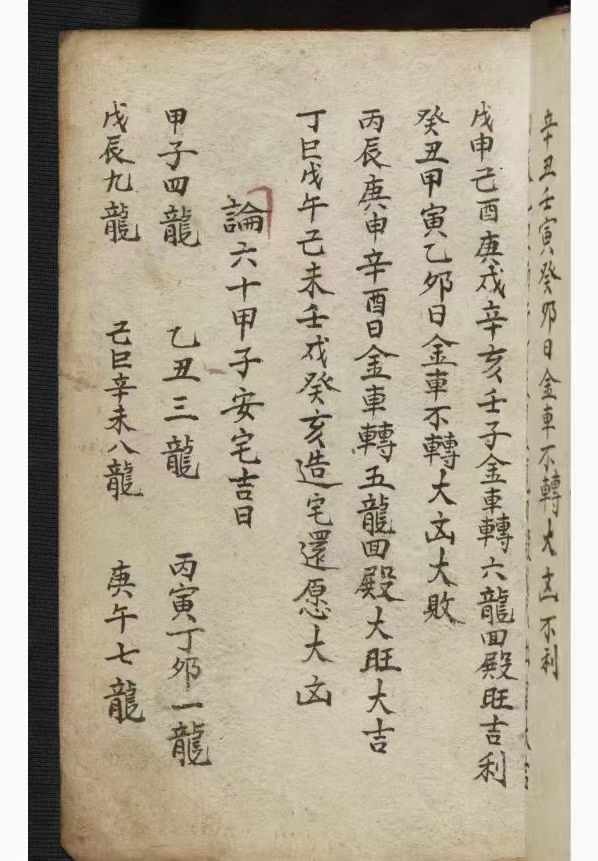 辛丑壬寅癸夘日金車不轉大㐫不利
戊申己酉庚戌辛亥壬子金車轉六龍囬殿旺吉利
癸丑甲寅乙夘日金車不轉大㐫大敗
丙辰庚申辛酉日金車轉五龍囬殿大旺大吉
丁巳戊午己未壬戌癸亥造宅還愿大㐫
論六十甲子安宅吉日
甲子四龍 乙丑三龍 丙寅丁夘一龍
戊辰九龍 己巳辛未八龍 庚午七龍